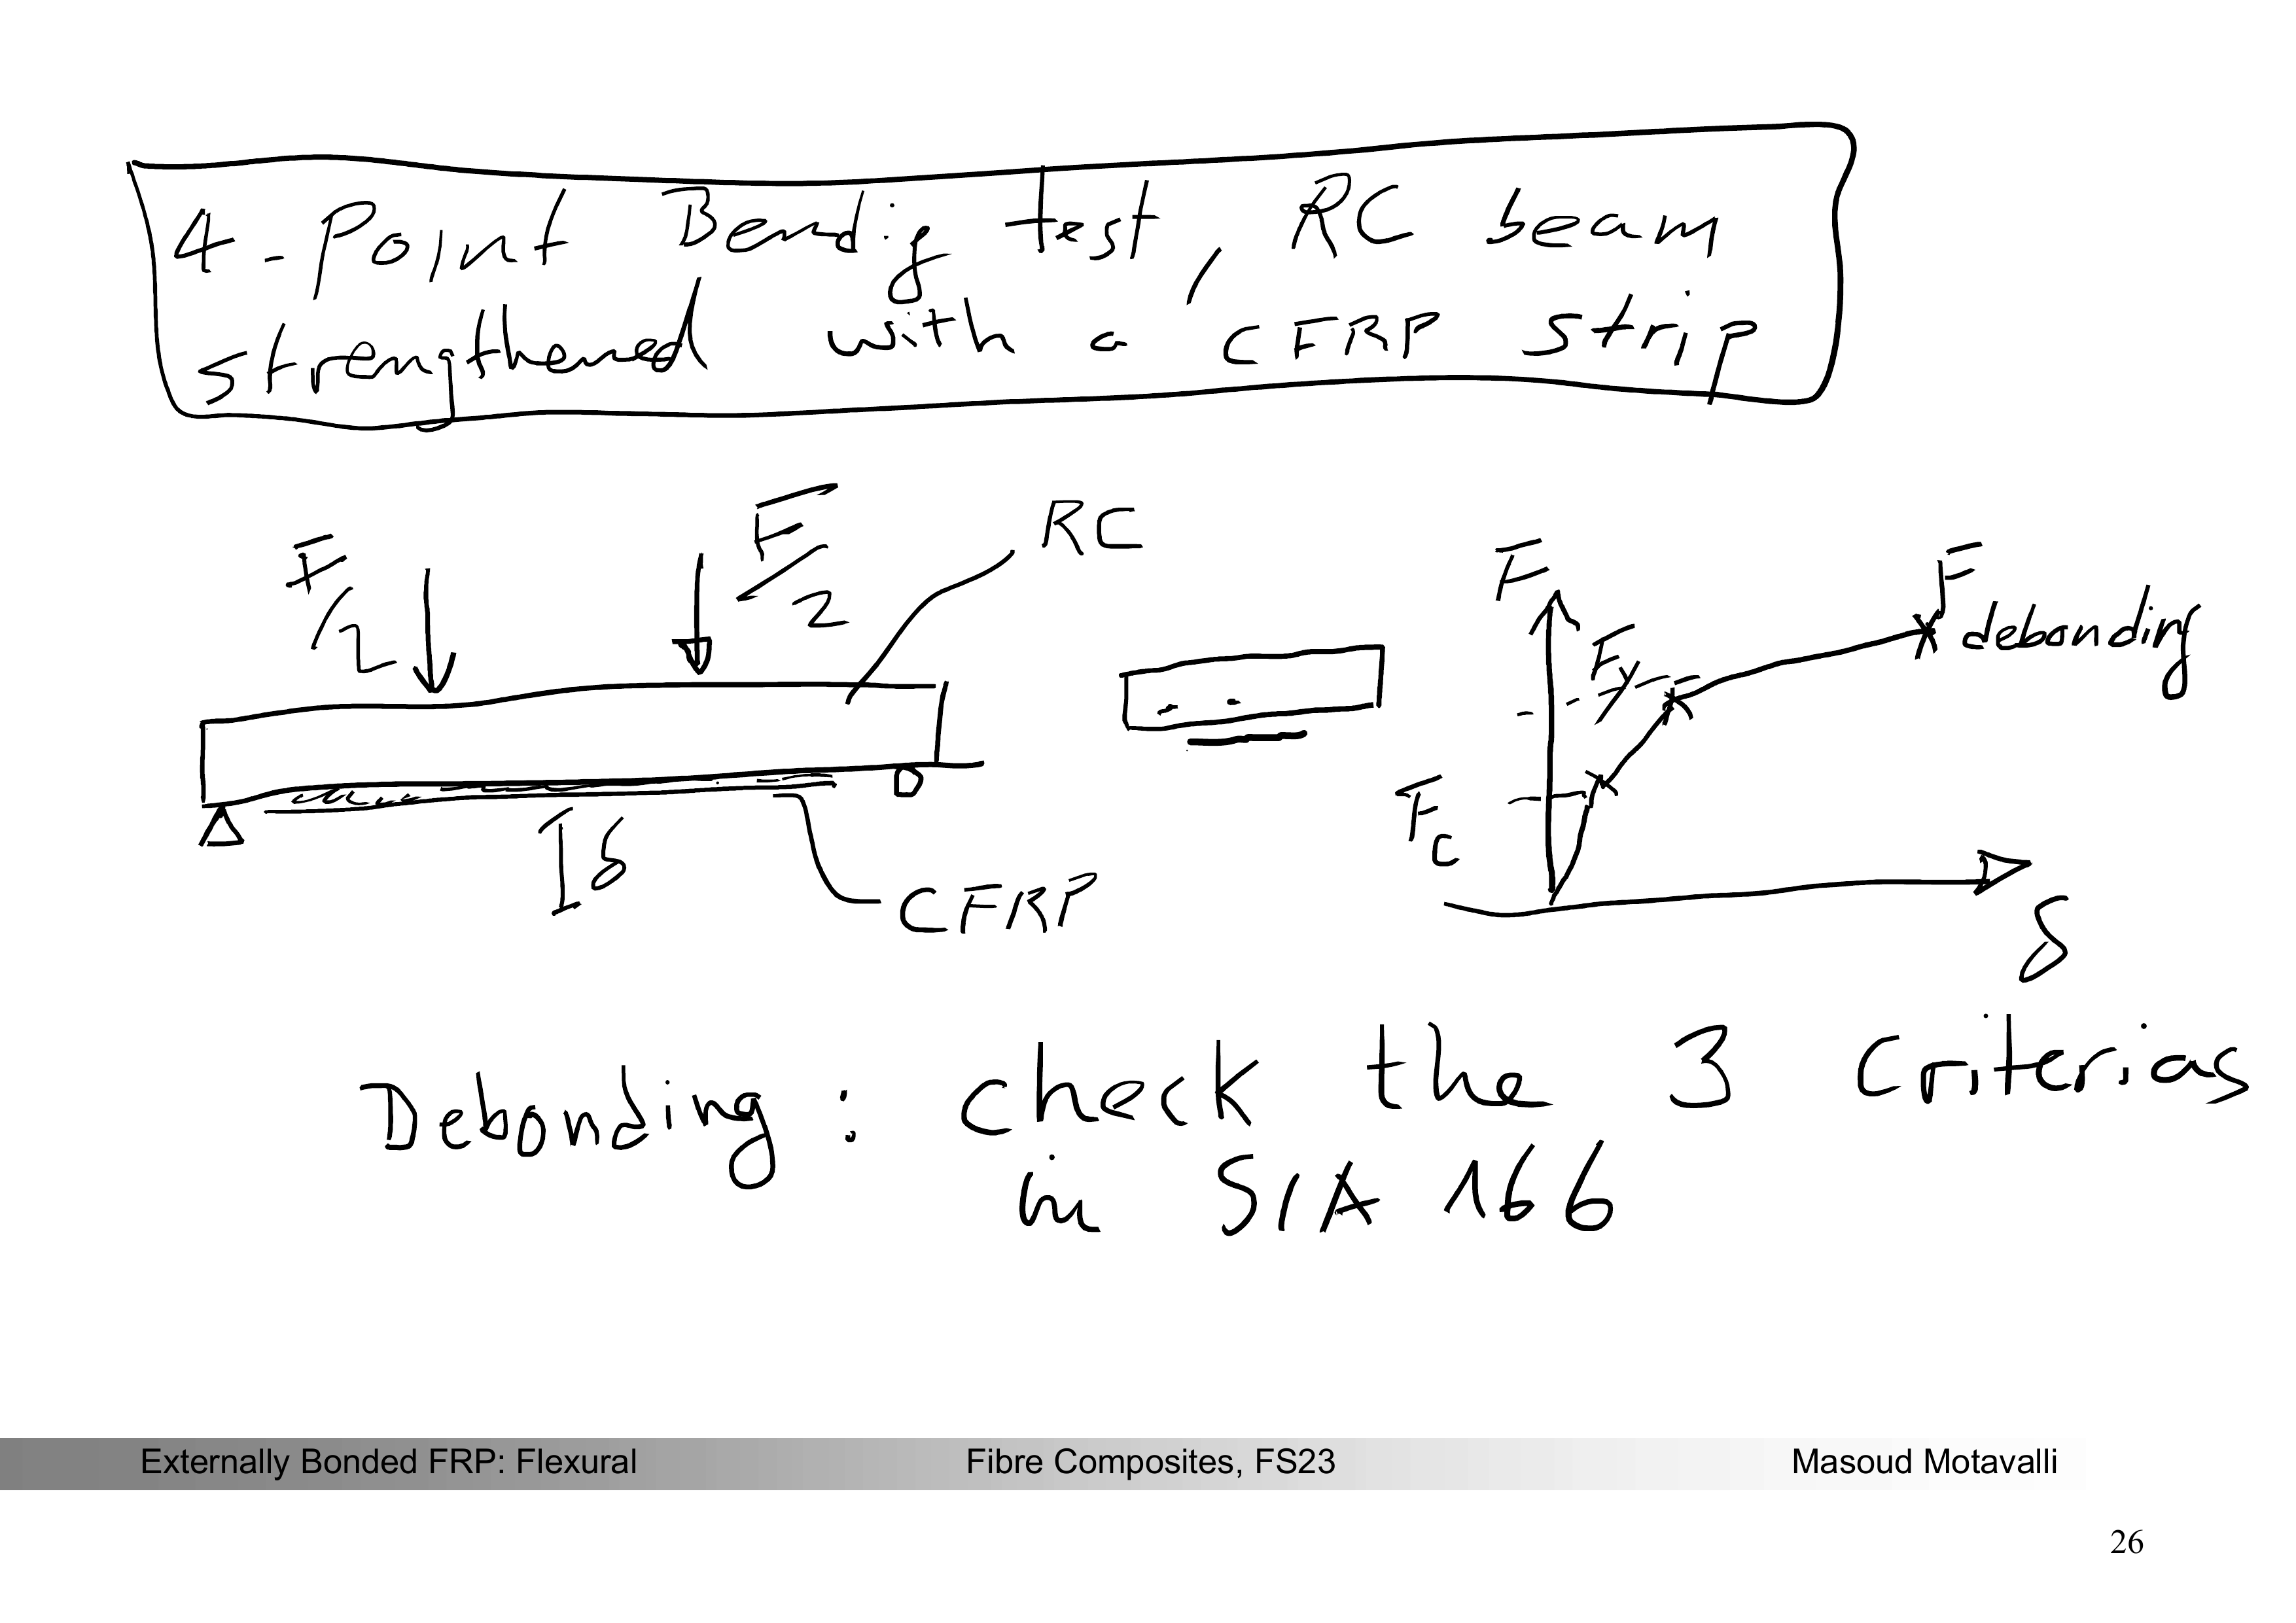 4-Point Bendig test, RC beam
strengthened with a CFRP strip
F/2
F/2
RC
δ
CFRP
F
Fy
Fc
F debonding
δ
Debonding: check the 3 criterias
in SIA 166
Externally Bonded FRP: Flexural
Fibre Composites, FS23
Masoud Motavalli
26